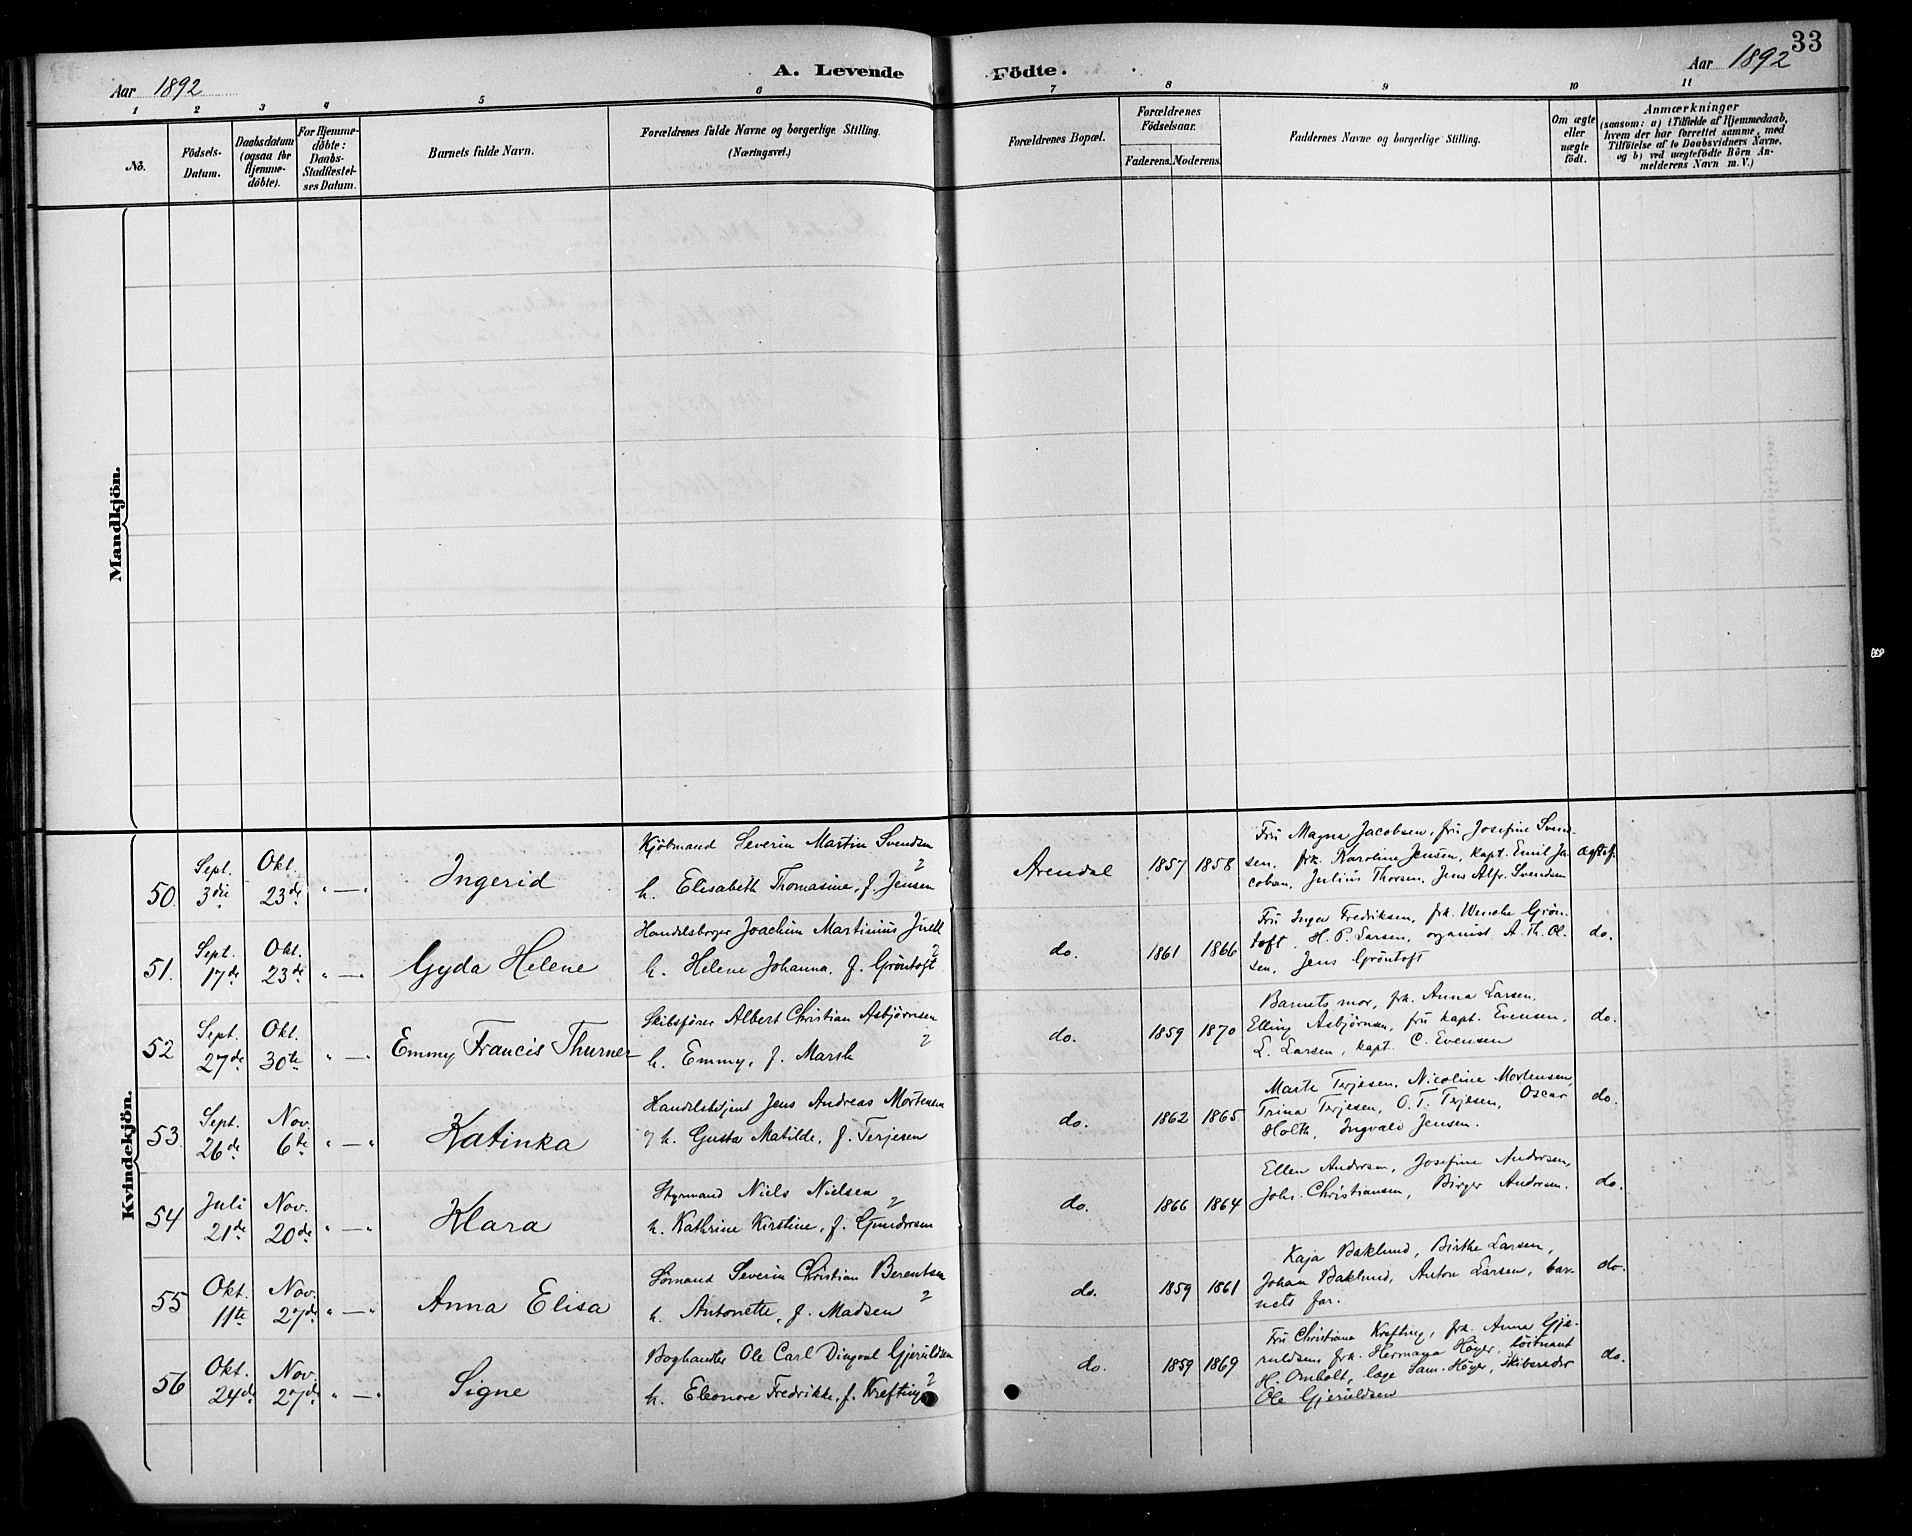 33
Aar 1892
A. Levende Födte.
Aar 1892
1 2 3 4 5 6 7 8 9 10 11
No.
Födsels-
Datum.
Daabsdatum
(ogsaa for
Hjemme-
döbte).
For Hjemme-
döbte:
Daabs-
Stadfæstel-
ses Datum.
Barnets fulde Navn.
Forældrenes fulde Navne og borgerlige Stilling.
(Næringsvei.)
Forældrenes Bopæl.
Forældrenes
Födselsaar.
Faderens. Moderens.
Faddernes Navne og borgerlige Stilling.
Om ægte
eller
uægte
födt.
Anmærkninger
(saasom: a) i Tilfælde af Hjemmedaab,
hvem der har forrettet samme, med
Tilföielse af to Daabsvidners Navne,
og b) ved uægtefödte Börn An-
melderens Navn m. V.)
Mandkjön.
Kvindekjön.
50. Sept. 3die Okt. 23de " — " Ingerid
Kjöbmand Severin Martin Svendsen
h. Elisabeth Thomasine, f. Jensen
Arendal 1857 1858
Fru Magna Jacobsen, fru Josefine Svend-
sen, frk. Karoline Jensen, kapt. Emil Ja-
cobsen, Julius Thorsen, Jens Alfr. Svendsen
Ægtef.
51. Sept. 17de Okt. 23de " — " Gyda Helene
Handelsborger Joachim Martinius Juell
h. Helene Johanna, f. Gröntoft
do. 1861 1866
Fru Inga Fredriksen, frk. Wenche Grön-
toft, H. P. Larsen, organist A. Th. Ol-
sen, Jens Gröntoft
do.
52 Sept. 27de Okt. 30te " — " Emmy Francis Thurner
Skibsförer Albert Christian Asbjörnsen
h. Emmy, f. Marsh
do. 1859 1870
Barnets mor, frk. Anna Larsen,
Elling Asbjörnsen, fru kapt. Evensen,
L. Larsen, kapt. C. Evensen
do.
53. Sept. 26de Nov. 6te " — " Katinka
Handelsbetjent Jens Andreas Mortensen
h. Gusta Matilde, f. Terjesen
do. 1862 1865
Marte Terjesen, Nicoline Mortensen,
Trina Terjesen, O. T. Terjesen, Oscar
Holth, Ingvald Jensen.
do.
54 Juli 21de Nov. 20de " — " Klara
Styrmand Niels Nielsen
h. Kathrine Kirstine, f. Gundersen
do. 1866 1864
Ellen Andersen, Josefine Andersen,
Johs. Christiansen, Birger Andersen.
do.
55 Okt. 11te Nov. 27de " — " Anna Elisa
Sömand Severin Christian Berentsen
h. Antonette, f. Madsen
do. 1859 1861
Kaja Baklund, Birthe Larsen,
Johan Baklund, Anton Larsen, bar-
nets far.
do.
56 Okt. 24de Nov. 27de " — " Signe
Boghandler Ole Carl Gjeruldsen
h. Eleonore Fredrikke, f. Krefting
do. 1859 1869
Fru Christiane Krefting, frk. Anna Gje-
ruldsen frk. Hermana Höyer, löitnant
H. Omholt, læge Sam. Höyer, Skibsreder
Ole Gjeruldsen
do.